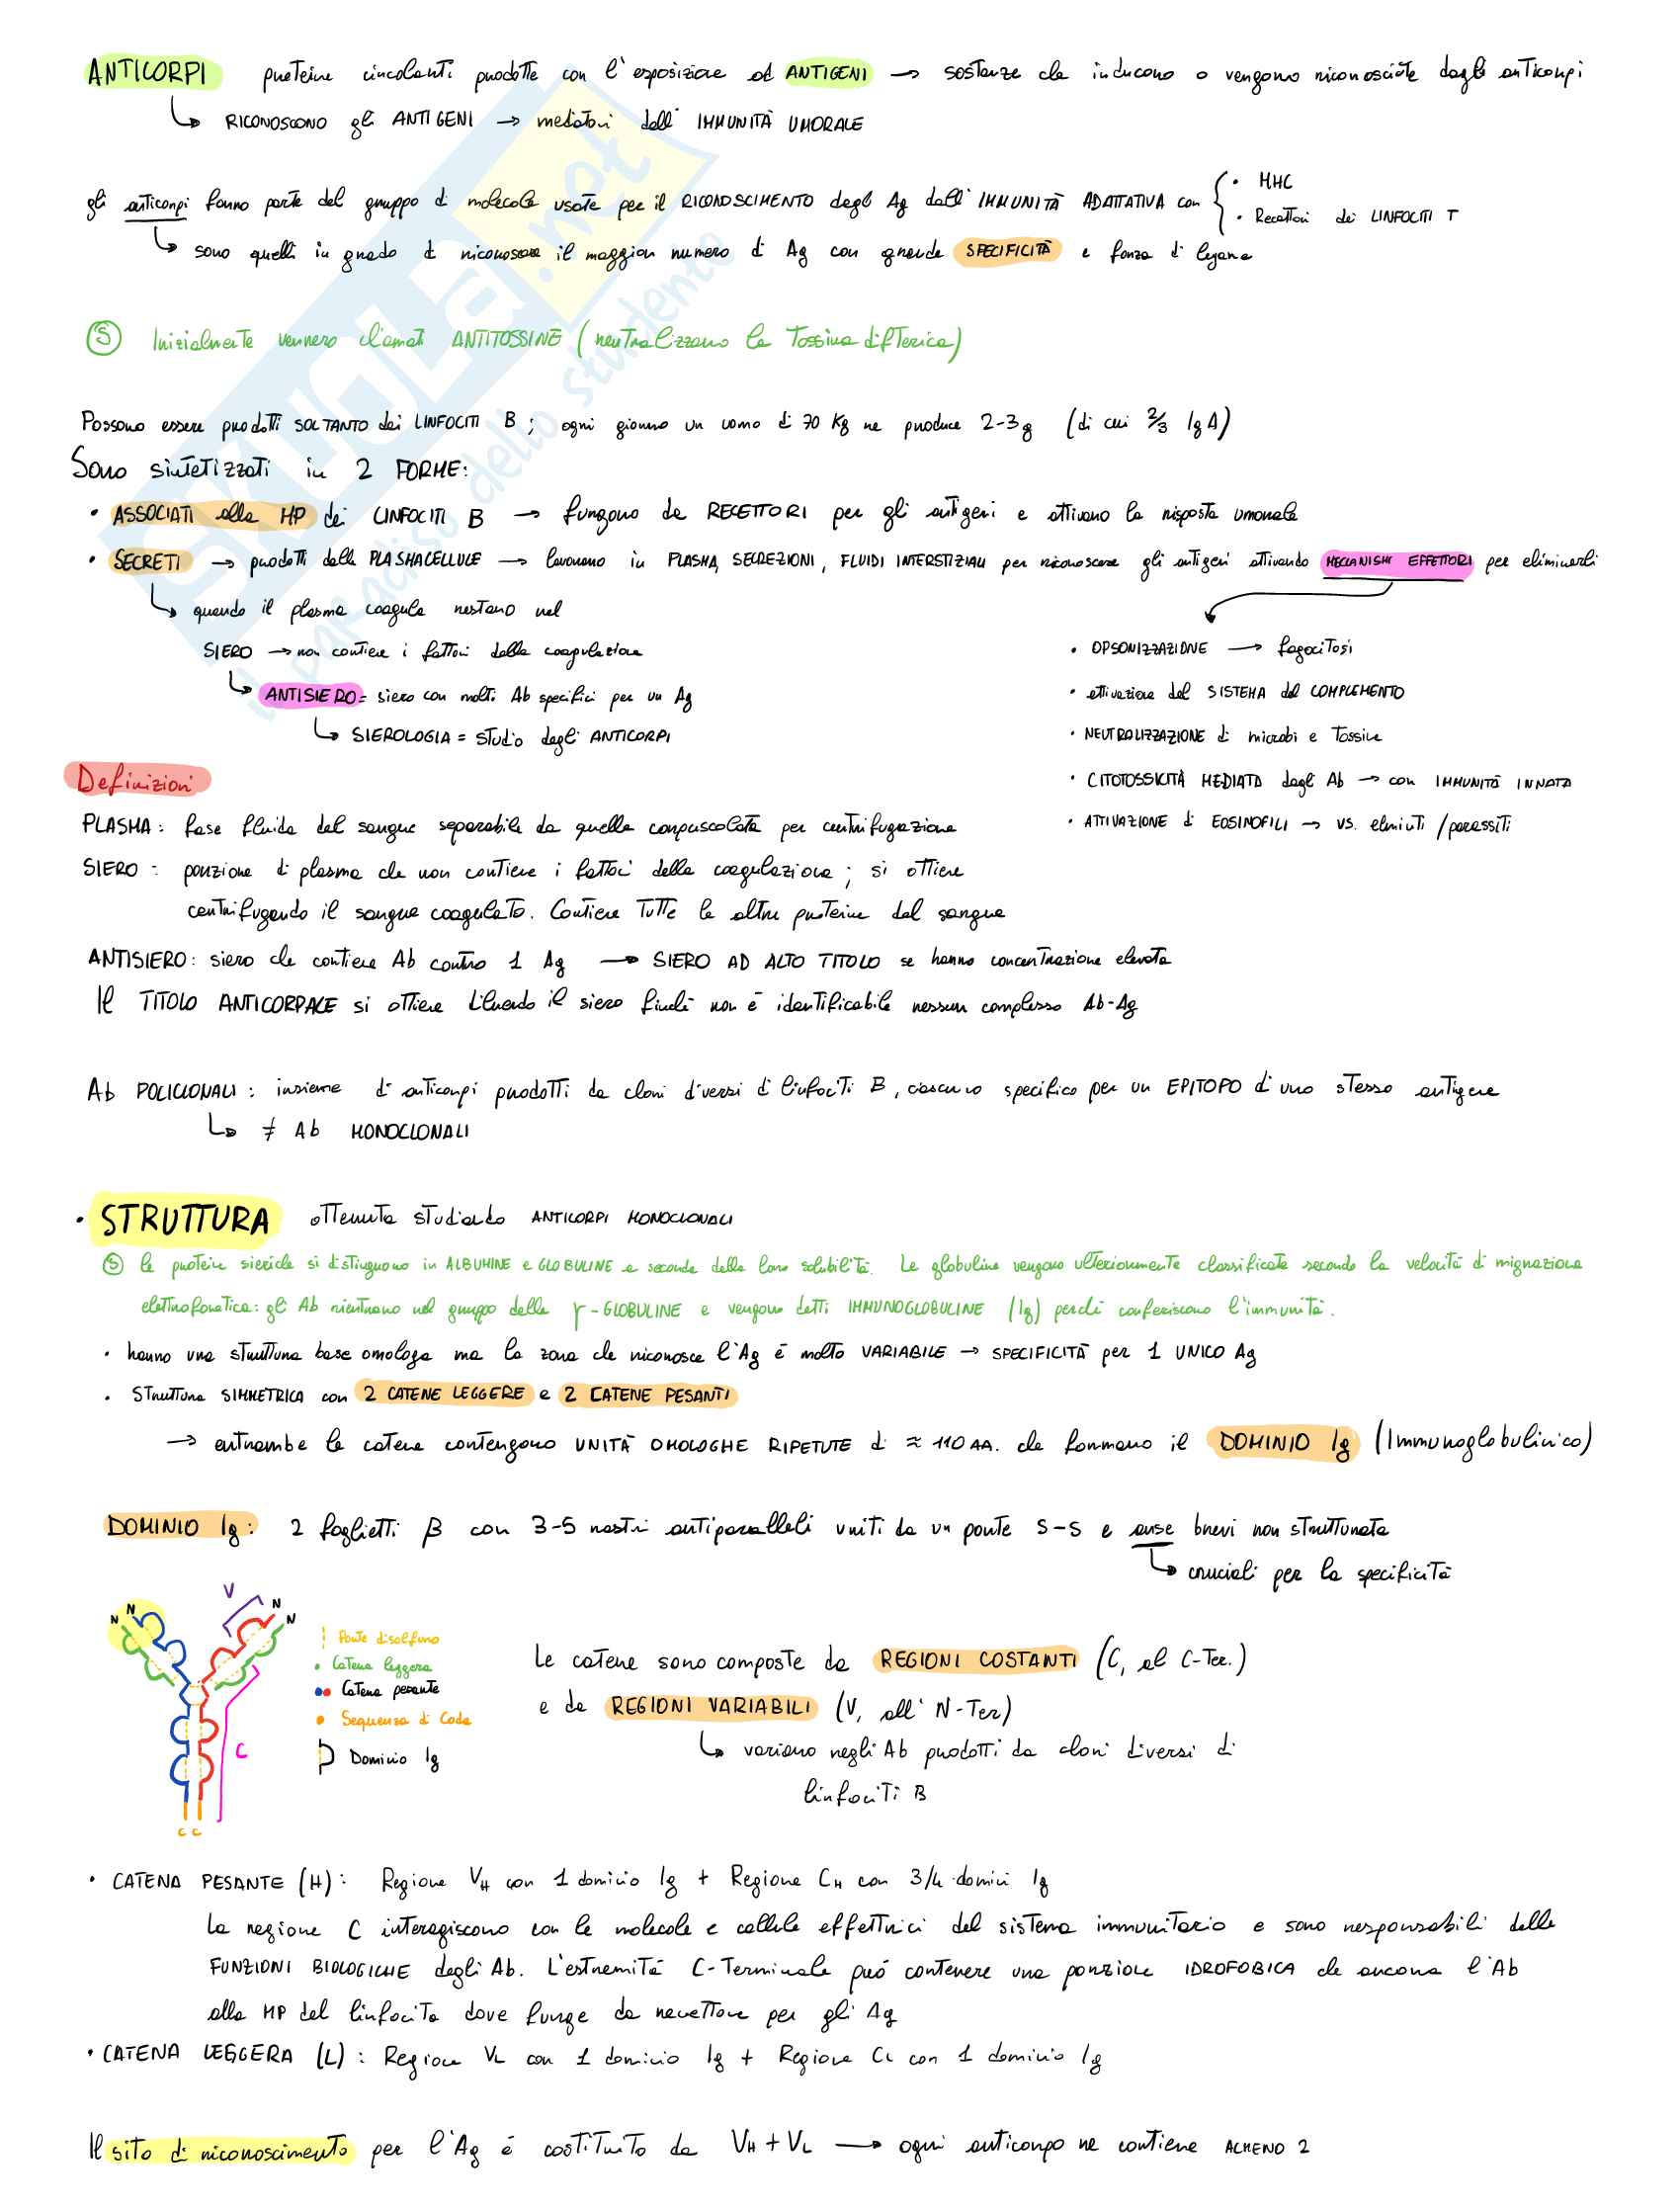 ANTICORPI proteine circolanti prodotte con l'esposizione ad ANTIGENI → sostanze che inducono o vengono riconosciute dagli anticorpi
↳ RICONOSCONO gli ANTIGENI → mediatori dell' IMMUNITÀ UMORALE
gli anticorpi fanno parte del gruppo di molecole usate per il RICONOSCIMENTO degli Ag dall' IMMUNITÀ ADATTATIVA con { • MHC
• Recettori dei LINFOCITI T
↳ sono quelli in grado di riconoscere il maggior numero di Ag con grande SPECIFICITÀ e forza di legame
Ⓢ Inizialmente vennero chiamati ANTITOSSINE (neutralizzano la tossina difterica)
Possono essere prodotti SOLTANTO dai LINFOCITI B; ogni giorno un uomo di 70 Kg ne produce 2-3g (di cui 2/3 IgA)
Sono sintetizzati in 2 FORME:
• ASSOCIATI alla MP dei LINFOCITI B → fungono da RECETTORI per gli antigeni e attivano la risposta umorale
• SECRETI → prodotti dalle PLASMACELLULE → lavorano in PLASMA, SECREZIONI, FLUIDI INTERSTIZIALI per riconoscere gli antigeni attivando MECCANISMI EFFETTORI per eliminarli
↳ quando il plasma coagula restano nel
SIERO → non contiene i fattori della coagulazione
↳ ANTISIERO = siero con molti Ab specifici per un Ag
↳ SIEROLOGIA = studio degli ANTICORPI
• OPSONIZZAZIONE → fagocitosi
• attivazione del SISTEMA del COMPLEMENTO
• NEUTRALIZZAZIONE di microbi e tossine
• CITOTOSSICITÀ MEDIATA dagli Ab → con IMMUNITÀ INNATA
• ATTIVAZIONE di EOSINOFILI → vs. elminti / parassiti
Definizioni
PLASMA: fase fluida del sangue separabile da quella corpuscolata per centrifugazione
SIERO: porzione di plasma che non contiene i fattori della coagulazione; si ottiene
centrifugando il sangue coagulato. Contiene tutte le altre proteine del sangue
ANTISIERO: siero che contiene Ab contro 1 Ag → SIERO AD ALTO TITOLO se hanno concentrazione elevata
Il TITOLO ANTICORPALE si ottiene diluendo il siero finché non è identificabile nessun complesso Ab-Ag
Ab POLICLONALI: insieme di anticorpi prodotti da cloni diversi di linfociti B, ciascuno specifico per un EPITOPO di uno stesso antigene
↳ ≠ Ab MONOCLONALI
• STRUTTURA ottenuta studiando ANTICORPI MONOCLONALI
Ⓢ le proteine sieriche si distinguono in ALBUMINE e GLOBULINE a seconda della loro solubilità. Le globuline vengono ulteriormente classificate secondo la velocità di migrazione
elettroforetica: gli Ab rientrano nel gruppo delle γ-GLOBULINE e vengono detti IMMUNOGLOBULINE (Ig) perché conferiscono l'immunità.
• hanno una struttura base omologa ma la zona che riconosce l'Ag è molto VARIABILE → SPECIFICITÀ per 1 UNICO Ag
• Struttura SIMMETRICA con 2 CATENE LEGGERE e 2 CATENE PESANTI
→ entrambe le catene contengono UNITÀ OMOLOGHE RIPETUTE di ≈ 110 AA. che formano il DOMINIO Ig (Immunoglobulinico)
DOMINIO Ig: 2 foglietti β con 3-5 nastri antiparalleli uniti da un ponte S-S e anse brevi non strutturate
↳ cruciali per la specificità
V
N N N N
Ponte disolfuro
• Catena leggera
•• Catena pesante
• Sequenza di Coda
Dominio Ig
C
C C
Le catene sono composte da REGIONI COSTANTI (C, al C-Ter.)
e da REGIONI VARIABILI (V, all' N-Ter)
↳ variano negli Ab prodotti da cloni diversi di
linfociti B
• CATENA PESANTE (H): Regione VH con 1 dominio Ig + Regione CH con 3/4 domini Ig
La regione C interagiscono con le molecole e cellule effettrici del sistema immunitario e sono responsabili delle
FUNZIONI BIOLOGICHE degli Ab. L'estremità C-Terminale può contenere una porzione IDROFOBICA che ancora l'Ab
alla MP del linfocita dove funge da recettore per gli Ag
• CATENA LEGGERA (L): Regione VL con 1 dominio Ig + Regione CL con 1 dominio Ig
Il sito di riconoscimento per l'Ag è costituito da VH+VL → ogni anticorpo ne contiene ALMENO 2
SKUOLA.net
il paradiso dello studente